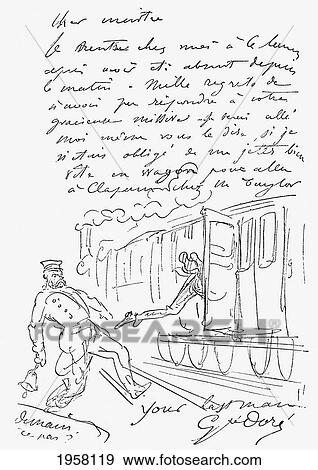 Cher maitre
Je rentre chez moi à le
après avoir été absent depuis
le matin. Mille regrets de
n'avoir pu répondre à votre
gracieuse missive. Je serais allé
moi même vous le dire, si je
n'étais obligé de me jeter bien
vite en wagon pour aller
à chez M Taylor
FOTOSEARCH®
fotosearch.com
your last man!!
Gve Doré
demain
n'ce pas?
1958119 www.fotosearch.com